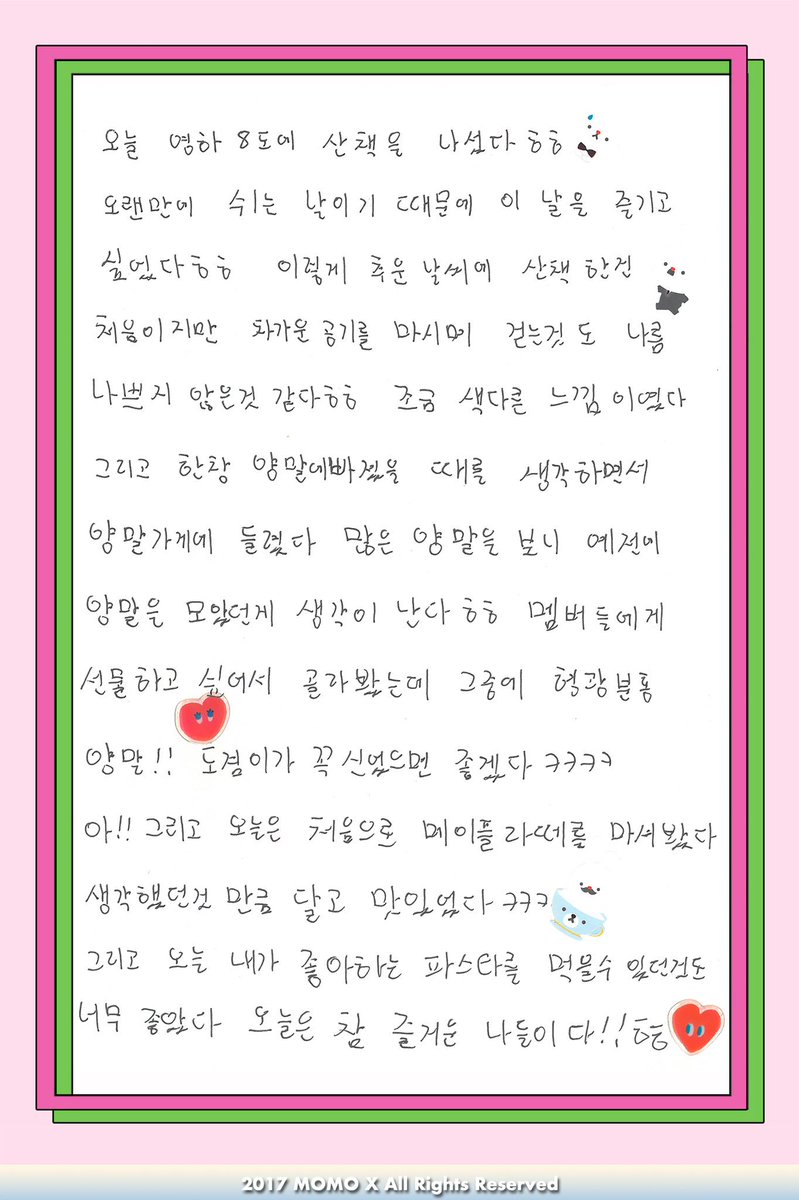 오늘 영하 8도에 산책을 나섰다ㅎㅎ
오랜만에 쉬는 날이기 때문에 이 날을 즐기고
싶었다ㅎㅎ 이렇게 추운 날씨에 산책 한건
처음이지만 차가운 공기를 마시며 걷는것 도 나름
나쁘지 않은것 같다ㅎㅎ 조금 색다른 느낌이였다
그리고 한창 양말에빠졌을 때를 생각하면서
양말가게에 들렸다 많은 양말을 보니 예전에
양말을 모았던게 생각이 난다ㅎㅎ 멤버들에게
선물하고 싶어서 골라봤는데 그중에 형광분홍
양말!! 도겸이가 꼭 신었으면 좋겠다 ㅋㅋㅋㅋ
아!! 그리고 오늘은 처음으로 메이플라떼를 마셔봤다
생각했던것 만큼 달고 맛있었다 ㅋㅋㅋ
그리고 오늘 내가 좋아하는 파스타를 먹을수 있던것도
너무 좋았다 오늘은 참 즐거운 나들이다!! ㅎㅎ
2017 MOMO X All Rights Reserved